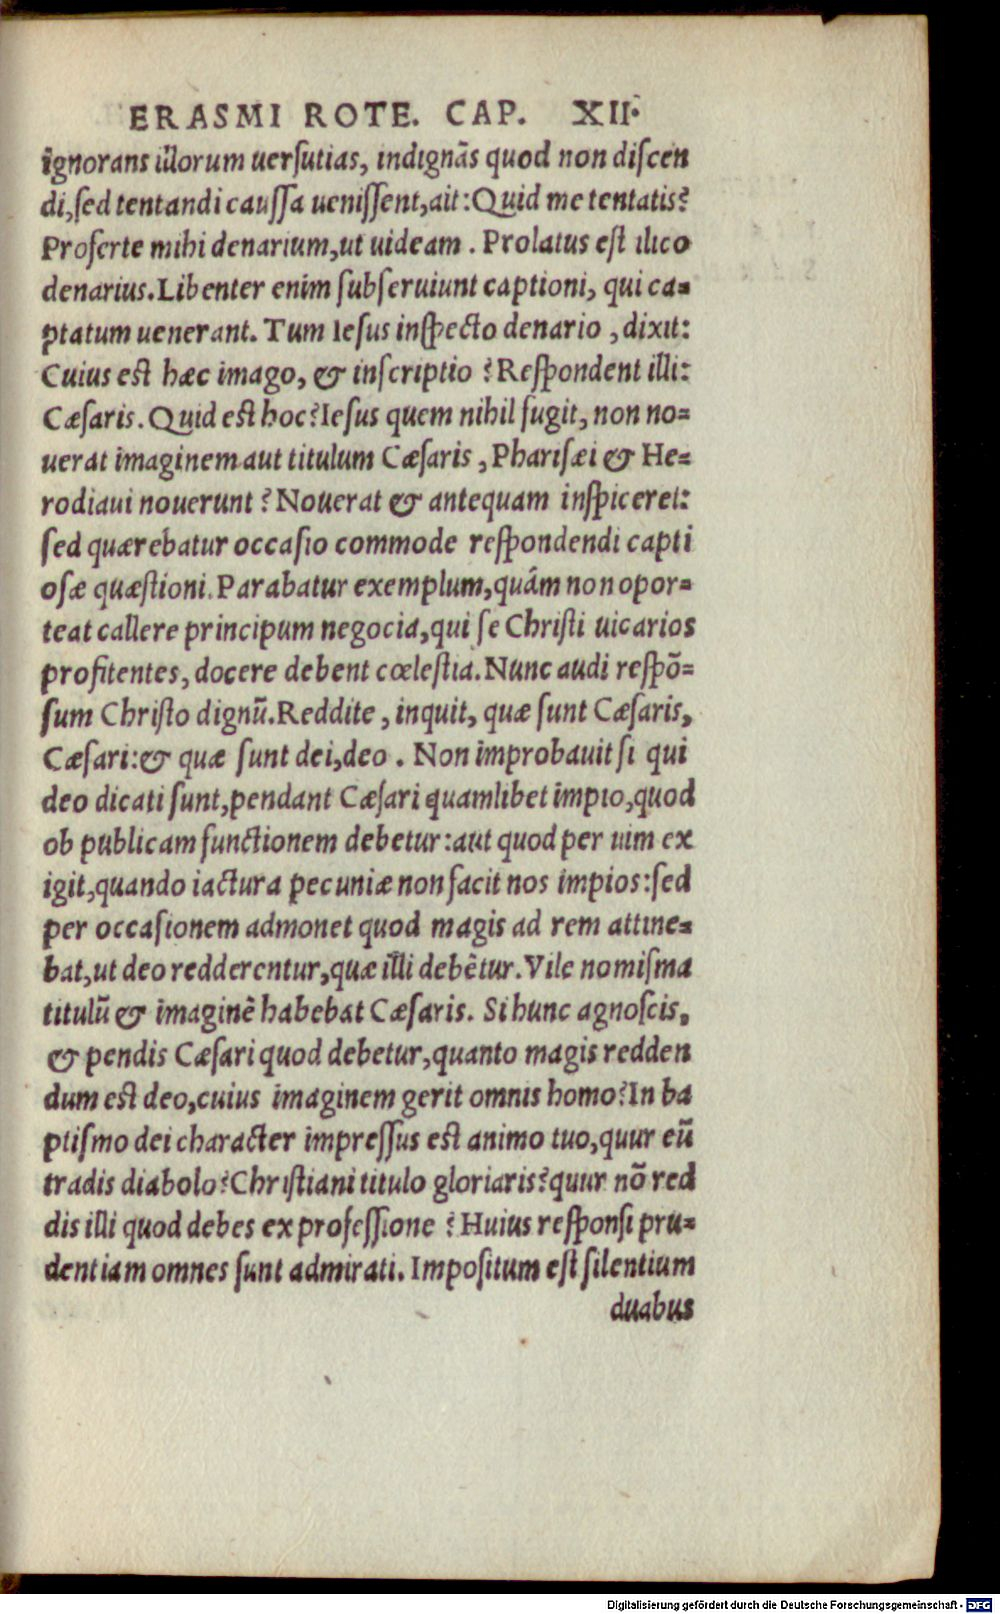 ERASMI ROTE. CAP. XII.
ignorans illorum uersutias, indignãs quod non discen
di,sed tentandi caussa uenissent,ait:Quid me tentatis?
Proferte mihi denarium,ut uideam . Prolatus est ilico
denarius.Libenter enim subseruiunt captioni, qui ca=
ptatum uenerant. Tum Iesus inspecto denario , dixit:
Cuius est hæc imago, & inscriptio ? Respondent illi:
Cæsaris. Quid est hoc?Iesus quem nihil fugit, non no=
uerat imaginem aut titulum Cæsaris , Pharisæi & He=
rodiaui nouerunt ? Nouerat & antequam inspiceret:
sed quærebatur occasio commode respondendi capti
osæ quæstioni. Parabatur exemplum,quám non opor=
teat callere principum negocia,qui se Christi uicarios
profitentes, docere debent cœlestia. Nunc audi respõ=
sum Christo dignũ.Reddite , inquit, quæ sunt Cæsaris,
Cæsari:& quæ sunt dei,deo . Non improbauit si qui
deo dicati sunt,pendant Cæsari quamlibet impio,quod
ob publicam functionem debetur:aut quod per uim ex
igit,quando iactura pecuniæ non facit nos impios:sed
per occasionem admonet quod magis ad rem attine=
bat,ut deo redderentur,quæ illi debẽtur.Vile nomisma
titulũ & imaginẽ habebat Cæsaris. Si hunc agnoscis,
& pendis Cæsari quod debetur,quanto magis redden
dum est deo,cuius imaginem gerit omnis homo?In ba
ptismo dei character impressus est animo tuo,quur eũ
tradis diabolo?Christiani titulo gloriaris?quur nõ red
dis illi quod debes ex professione ? Huius responsi pru=
dentiam omnes sunt admirati. Impositum est silentium
duabus
Digitalisierung gefördert durch die Deutsche Forschungsgemeinschaft - DFG